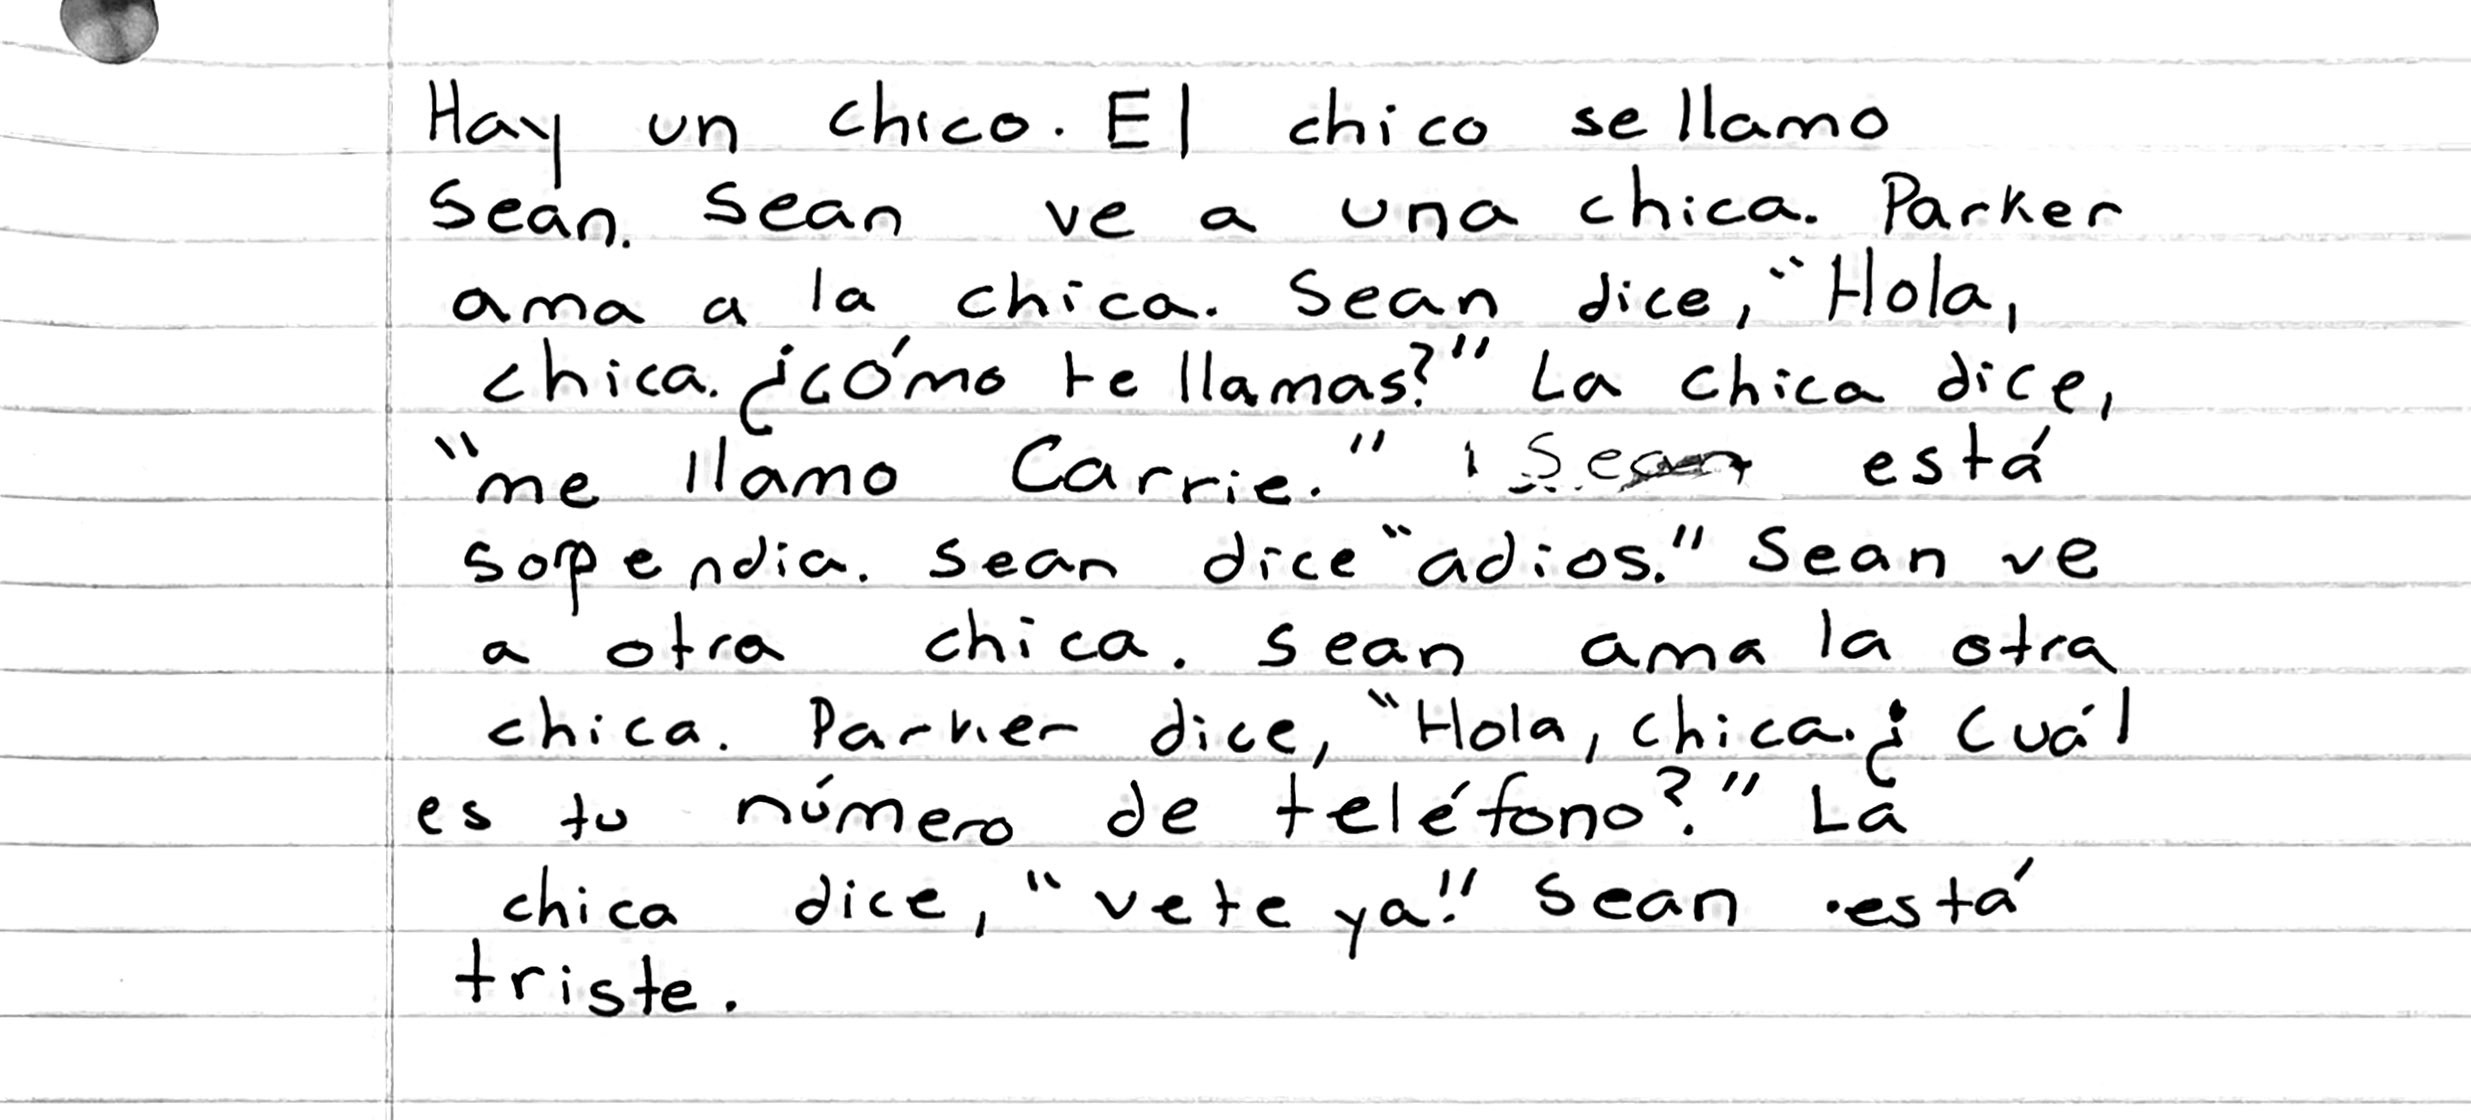 Hay un chico. El chico se llamo
Sean. Sean ve a una chica. Parker
ama a la chica. Sean dice, "Hola,
chica. ¿cómo te llamas?" La chica dice,
"me llamo Carrie." Sean está
sorpendia. Sean dice "adios." Sean ve
a otra chica. Sean ama la otra
chica. Parker dice, "Hola, chica. ¿Cuál
es tu número de teléfono?" La
chica dice, "vete ya!" Sean está
triste.